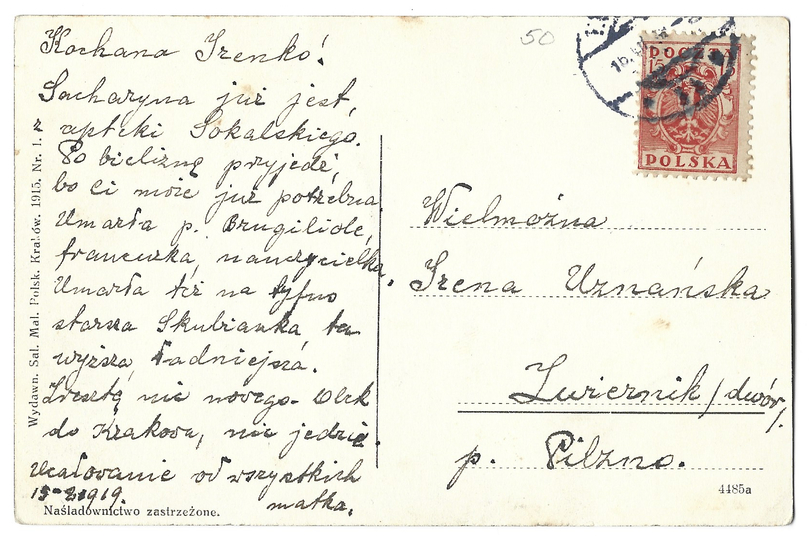 Kochana Irenko!
Sacharyna już jest,
z apteki Sokalskiego.
Po bieliznę przyjedź,
bo Ci może już potrzebna.
Umarła p. Brugiliolé,
francuzka, nauczycielka.
Umarła też na tyfus
starsza Skubianka ta
wyższa, ładniejsza.
Zresztą nic nowego. Olek
do Krakowa, nie jedzie.
Ucałowanie od wszystkich
15-2 1919.
matka.
Naśladownictwo zastrzeżone.
Wydawn. Sal. Mal. Polsk. Kraków. 1915. Nr. 1.
50
15
POLSKA
Wielmożna
Irena Uznańska
Zwiernik /dwór/.
p. Pilzno.
4485a